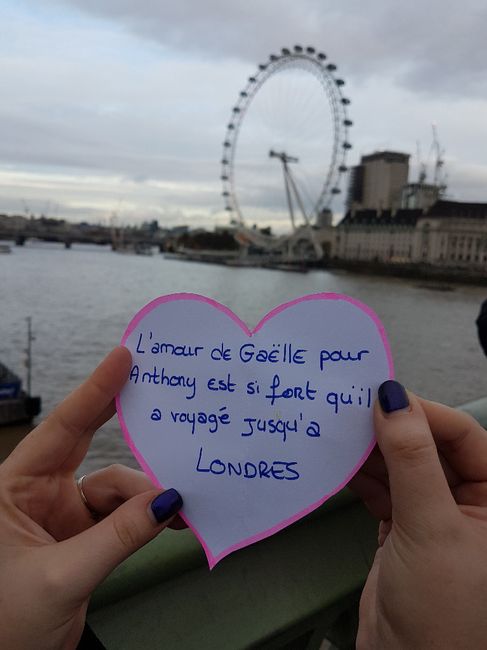 L'amour de Gaëlle pour
Anthony est si fort qu'il
a voyagé jusqu'a
LONDRES